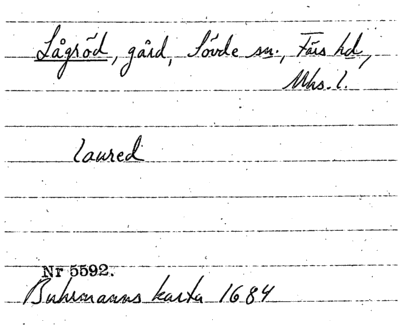 Lågröd, gård, Sövde sn., Färs hd,
Mhs. l.
Laured
Nr 5592.
Buhrmanns karta 1684